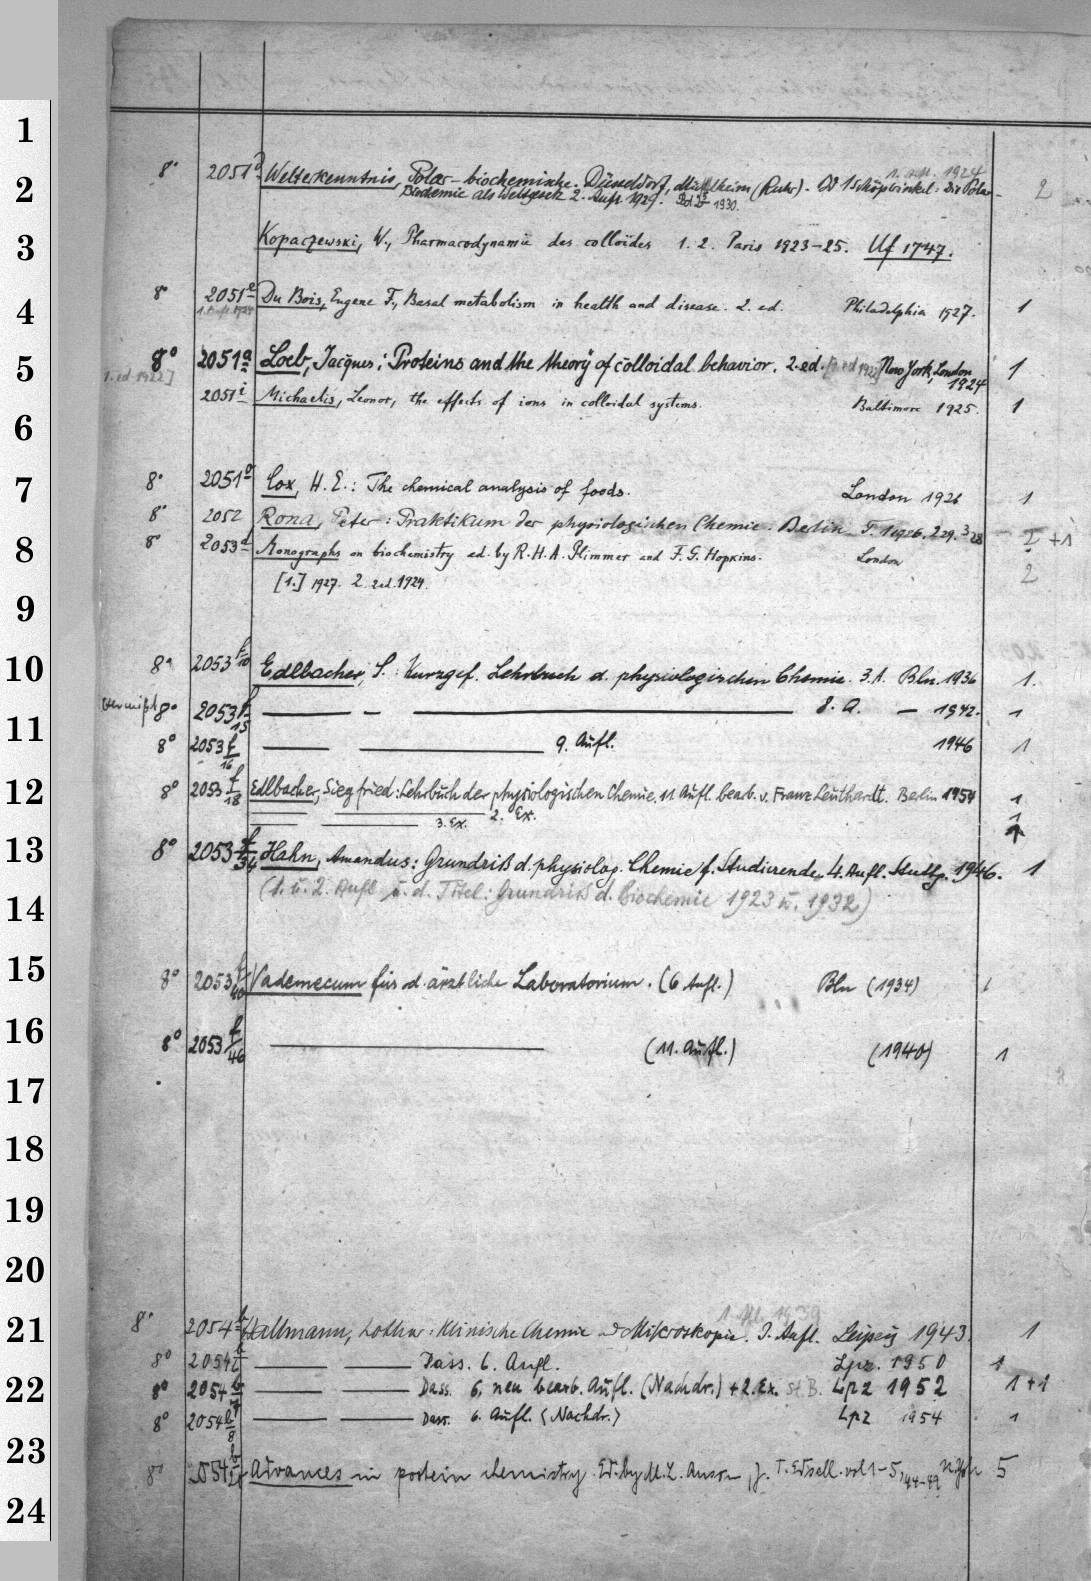 1
2
3
4
5
6
7
8
9
10
11
12
13
14
15
16
17
18
19
20
21
22
23
24
1924
8° 2051 Welterkenntnis, Polar-biochemische. Düsseldorf, (Ruhr). Die Polar- 2
Biochemie als Weltgesetz 2. Aufl. 1929. 1930.
Kopaczewski, W., Pharmacodynamie des colloïdes 1. 2. Paris 1923-25. Uf 1747.
8° 2051e Du Bois, Eugene F., Basal metabolism in health and disease. 2. ed. Philadelphia 1927. 1
8° 2051a Loeb, Jacques: Proteins and the theory of colloidal behavior. 2. ed. New York, London 1
1. ed. 1922] 1924
2051i Michaelis, Leonor, the effects of ions in colloidal systems. Baltimore 1925. 1
8° 2051 Cox, H. E.: The chemical analysis of foods. London 1926 1
8° 2052 Rona, Peter: Praktikum der physiologischen Chemie. Berlin T. 1 1926. I +1
8° 2053d Monographs on biochemistry ed. by R.H.A. Plimmer and F.G. Hopkins. London 2
[1.] 1927. 2. 2 ed. 1924.
8° 2053 f/10 Edlbacher, S.: Kurzgef. Lehrbuch d. physiologischen Chemie. 3. A. Bln. 1936 1.
vermißt 8° 2053 f/15 — — — 8. A. — 1942. 1
8° 2053 f/16 — — 9. Aufl. 1946 1
8° 2053 f/18 Edlbacher, Siegfried: Lehrbuch der physiologischen Chemie. 11. Aufl. bearb. v. Franz Leuthardt. Berlin 1954 1
— — 2. Ex. 1
— — 3. Ex.
8° 2053 f/34 Hahn, Amandus: Grundriß d. physiolog. Chemie f. Studierende. 4. Aufl. Stuttg. 1946. 1
(1. u. 2. Aufl. u. d. Titel: Grundriß d. Biochemie 1923 u. 1932)
8° 2053 f/40 Vademecum für d. ärztliche Laboratorium. (6 Aufl.) Bln (1934) 1
8° 2053 f/46 — (11. Aufl.) (1940) 1
1. Afl. 1939
8° 2054 b Hallmann, Lothar: Klinische Chemie u. Mikroskopie. 3. Aufl. Leipzig 1943. 1
8° 2054 b — — Dass. 6. Aufl. Lpz. 1950 1
8° 2054 b/7 — — Dass. 6. neu bearb. Aufl. (Nachdr.) + 2. Ex. St. B. Lpz 1952 1+1
8° 2054 b/8 — — Dass. 6. Aufl. (Nachdr.) Lpz 1954 1
8° 2054 Advances in protein chemistry. Ed. by M. L. Anson, J. T. Edsall. vol 1-5, 44-49 N. York 5